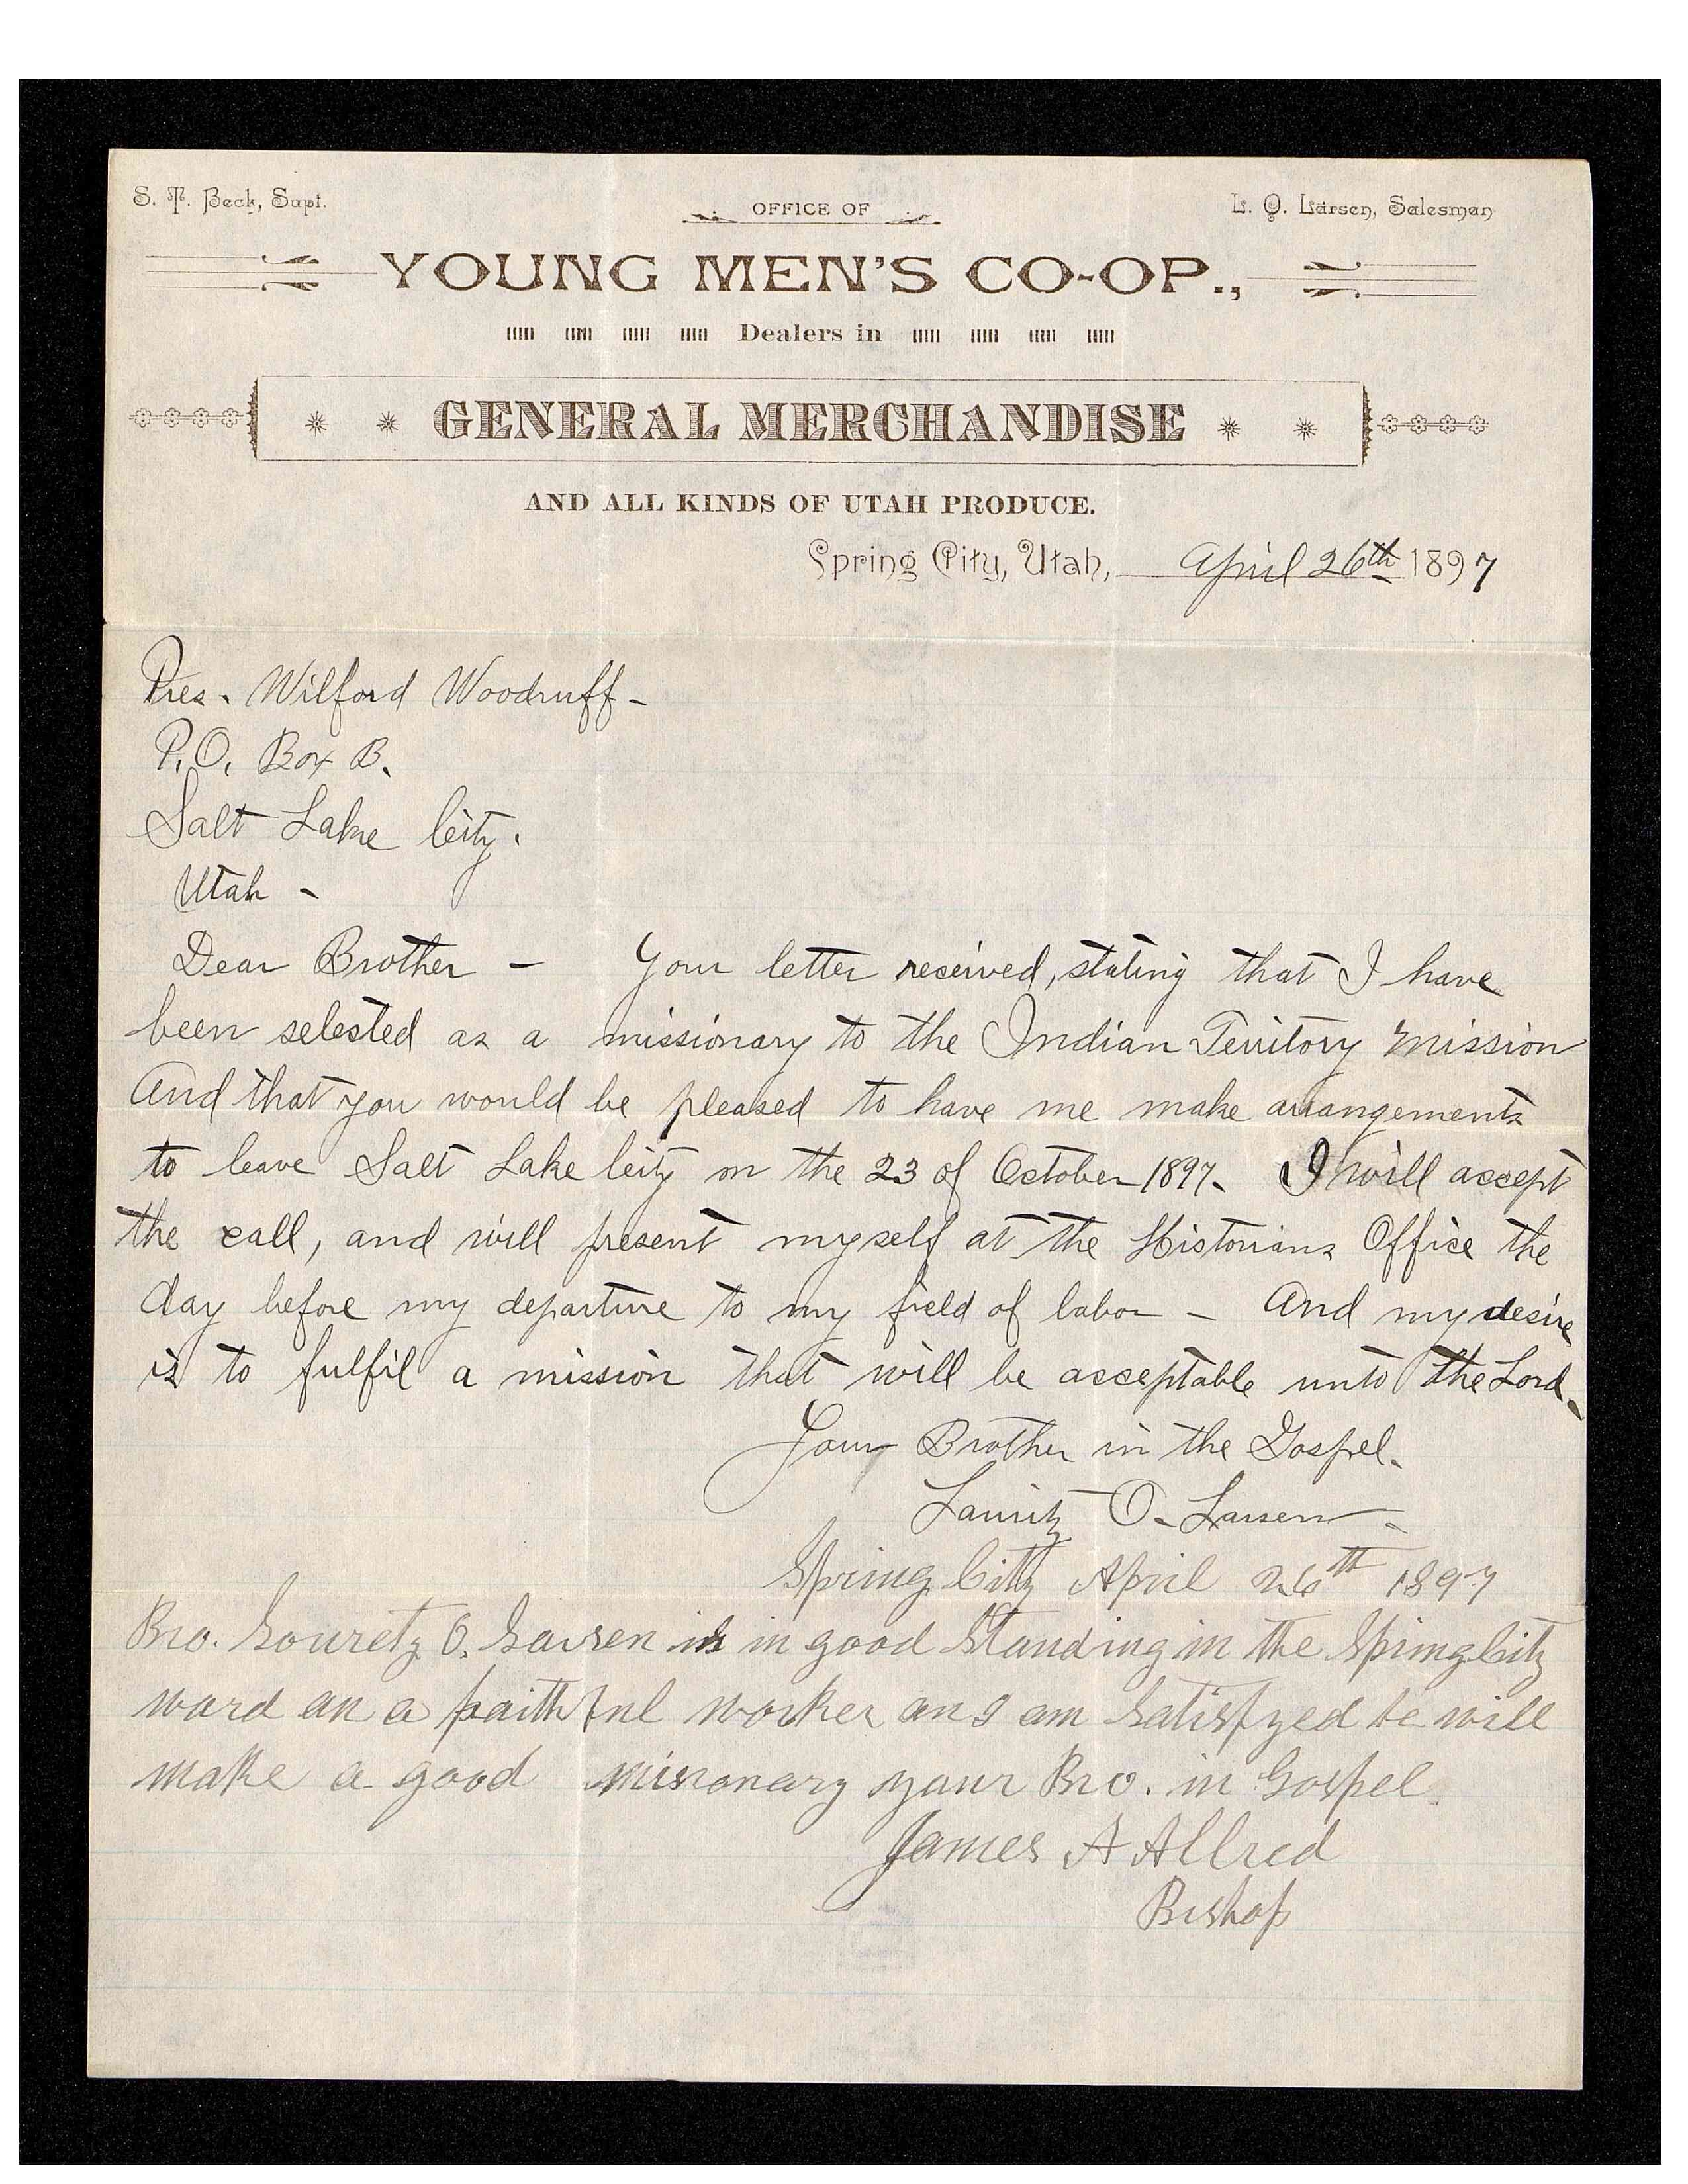 S. T. Beck, Supt.
OFFICE OF
L. O. Larsen, Salesman
YOUNG MEN'S CO-OP.,
Dealers in
GENERAL MERCHANDISE
AND ALL KINDS OF UTAH PRODUCE.
Spring City, Utah, April 26th 1897
Pres. Wilford Woodruff-
P.O. Box B.
Salt Lake City.
Utah -
Dear Brother - Your letter received, stating that I have
been selected as a missionary to the Indian Territory Mission
And that you would be pleased to have me make arrangements
to leave Salt Lake City on the 23 of October 1897. I will accept
the call, and will present myself at the Historians Office the
day before my departure to my field of labor - And my desire
is to fulfil a mission that will be acceptable unto the Lord.
Your Brother in the Gospel.
Lauritz O. Larsen.
Spring City April 26th 1897
Bro. Louretz O. Larsen is in good Standing in the Spring City
ward an a faithful worker an I am Satisfyed he will
make a good misionary your Bro. in Gospel.
James A Allred
Bishop